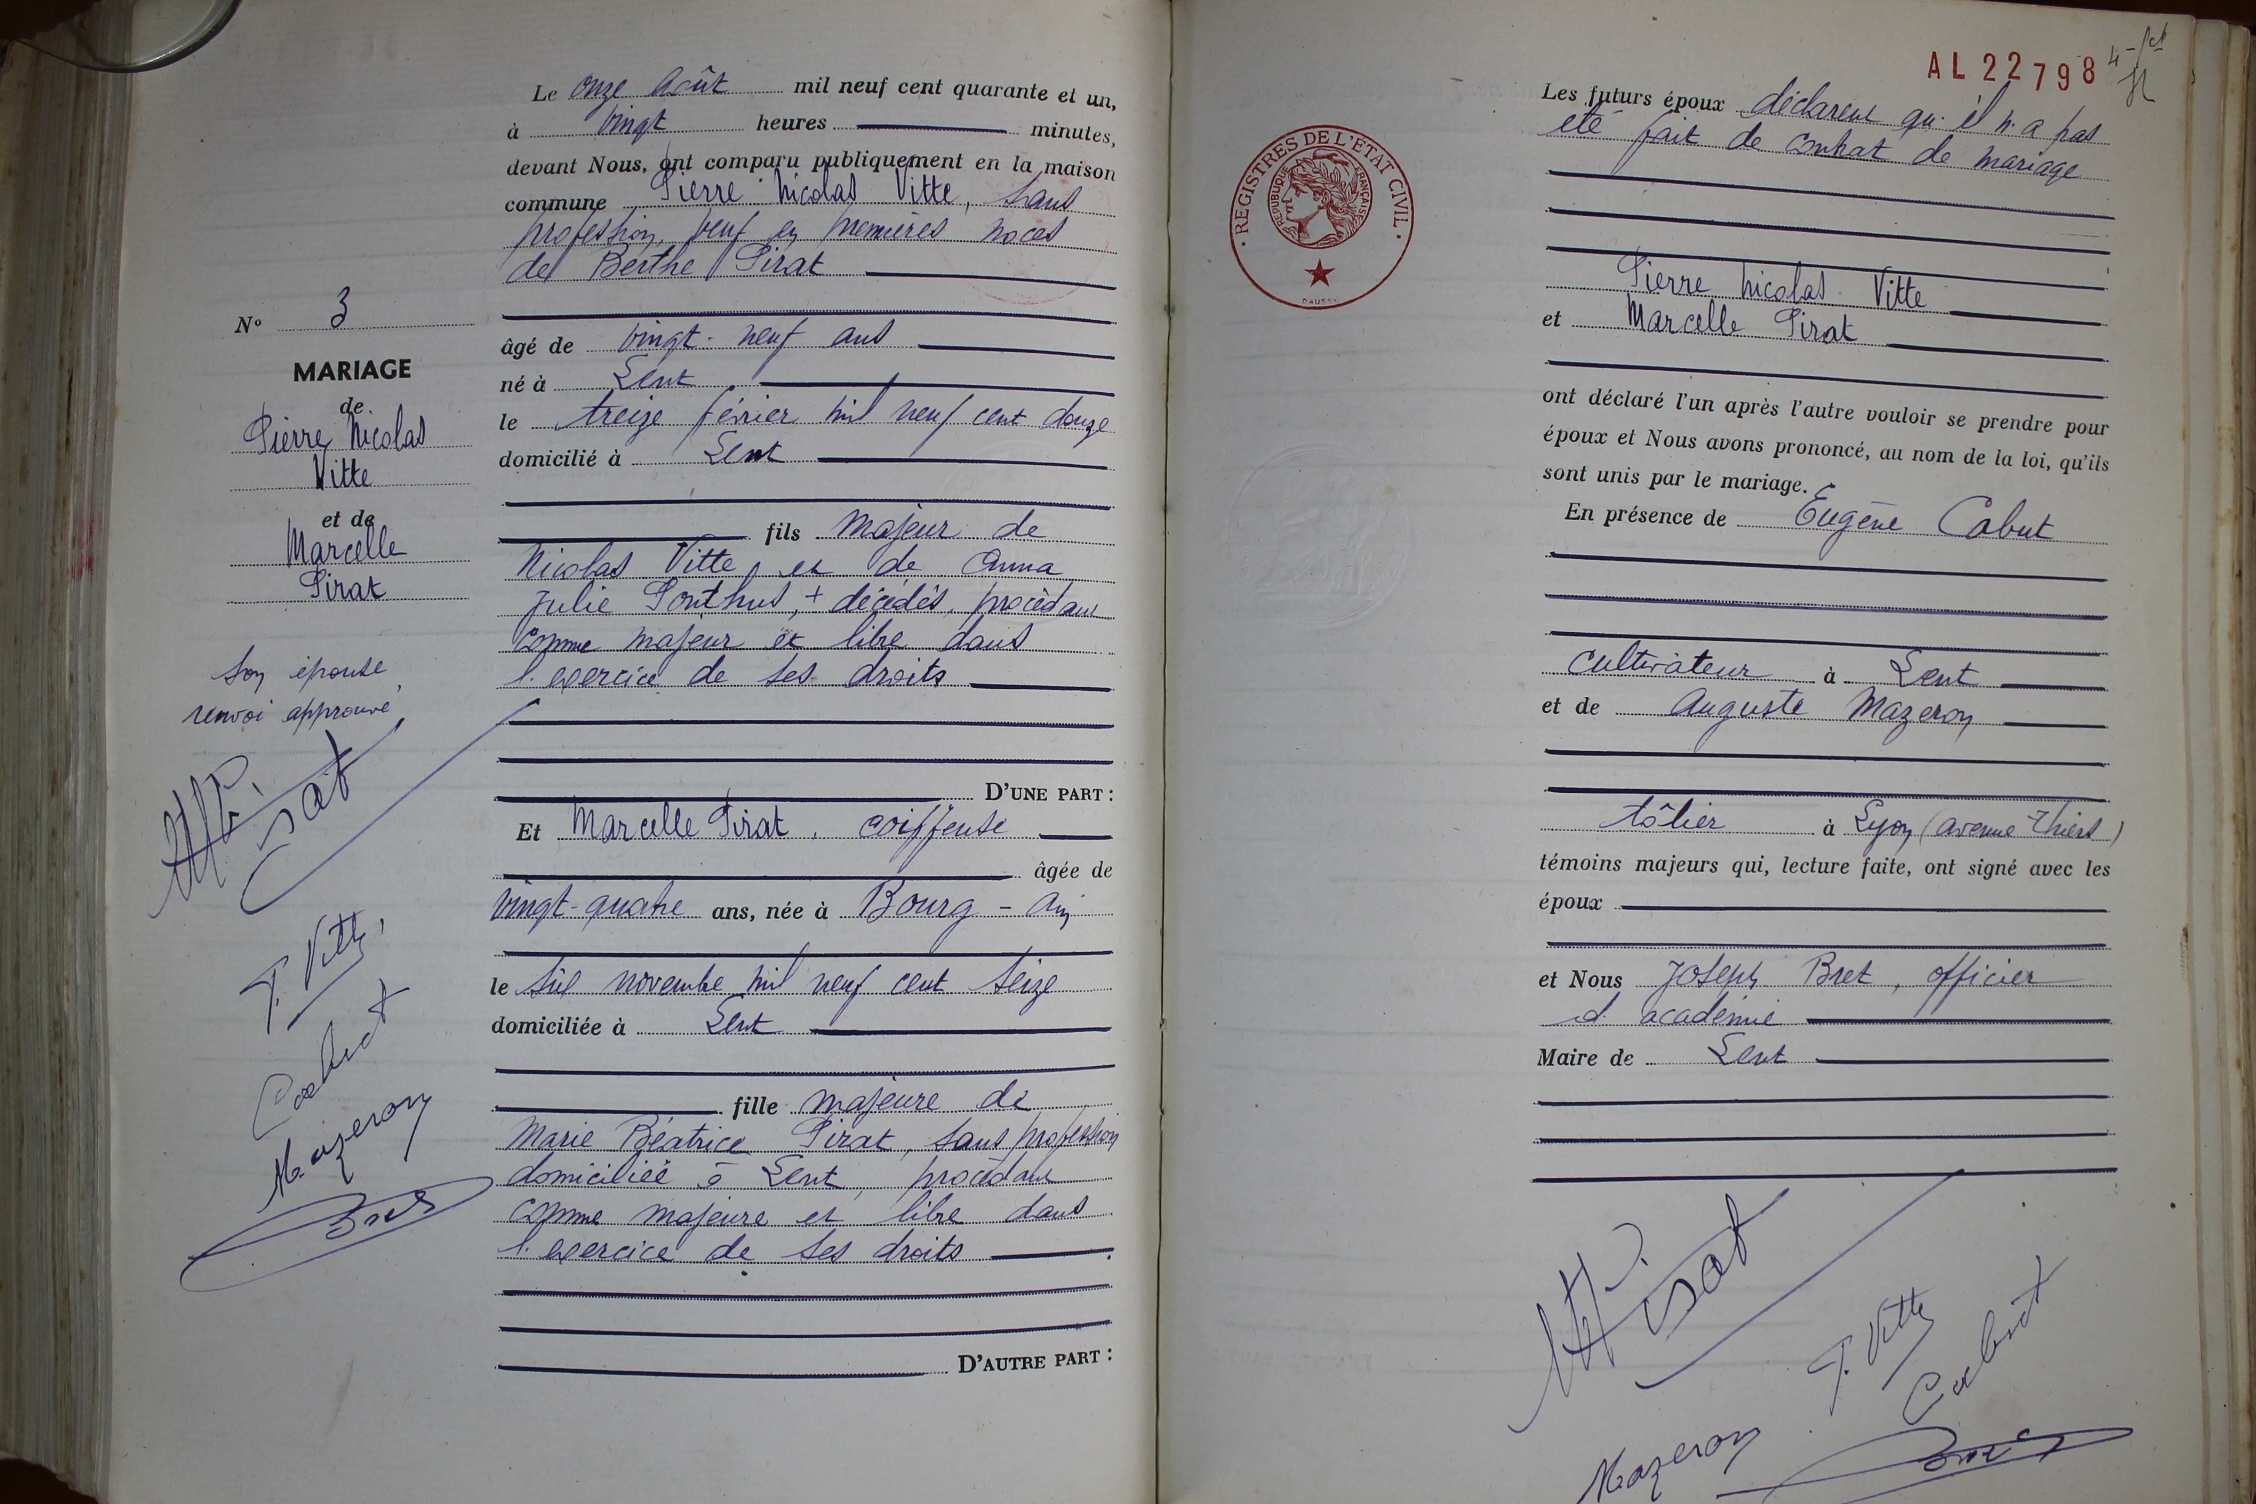 Le onze Août mil neuf cent quarante et un,
à vingt heures minutes,
devant Nous, ont comparu publiquement en la maison
commune Pierre Nicolas Vitte, sans
profession, veuf en premières noces
de Berthe Pirat
âgé de vingt-neuf ans
né à Lent
le treize février mil neuf cent douze
domicilié à Lent
fils majeur de
Nicolas Vitte et de Anna
Julie Ponthus, + décédés, procédant
comme majeur et libre dans
l'exercice de ses droits
D'UNE PART :
Et Marcelle Pirat, coiffeuse
âgée de
vingt-quatre ans, née à Bourg - Ain
le six novembre mil neuf cent seize
domiciliée à Lent
fille majeure de
Marie Béatrice Pirat, sans profession
domiciliée à Lent, procédant
comme majeure et libre dans
l'exercice de ses droits
D'AUTRE PART :
No 3
MARIAGE
de
Pierre Nicolas
Vitte
et de
Marcelle
Pirat
son épouse
renvoi approuvé
Pirat
P. Vitte
Cabut
Mazeron
Bret
AL 22798
REGISTRES DE L'ÉTAT CIVIL
RÉPUBLIQUE FRANÇAISE
Les futurs époux déclarent qu'il n'a pas
été fait de contrat de mariage
Pierre Nicolas Vitte
et Marcelle Pirat
ont déclaré l'un après l'autre vouloir se prendre pour
époux et Nous avons prononcé, au nom de la loi, qu'ils
sont unis par le mariage.
En présence de Eugène Cabut
cultivateur à Lent
et de Auguste Mazeron
tôlier à Lyon (avenue Thiers)
témoins majeurs qui, lecture faite, ont signé avec les
époux
et Nous Joseph Bret, officier
d'académie
Maire de Lent
Pirat
P. Vitte
Cabut
Mazeron
Bret